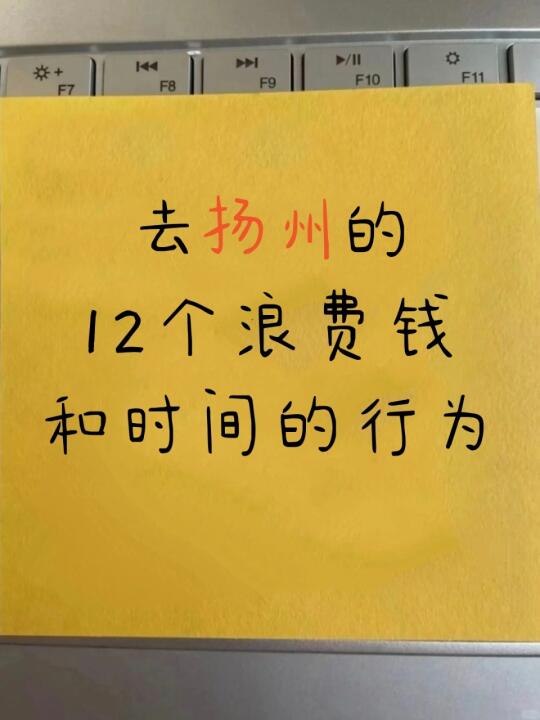 +
F7
F8
F9
F10
F11
去扬州的
12个浪费钱
和时间的行为